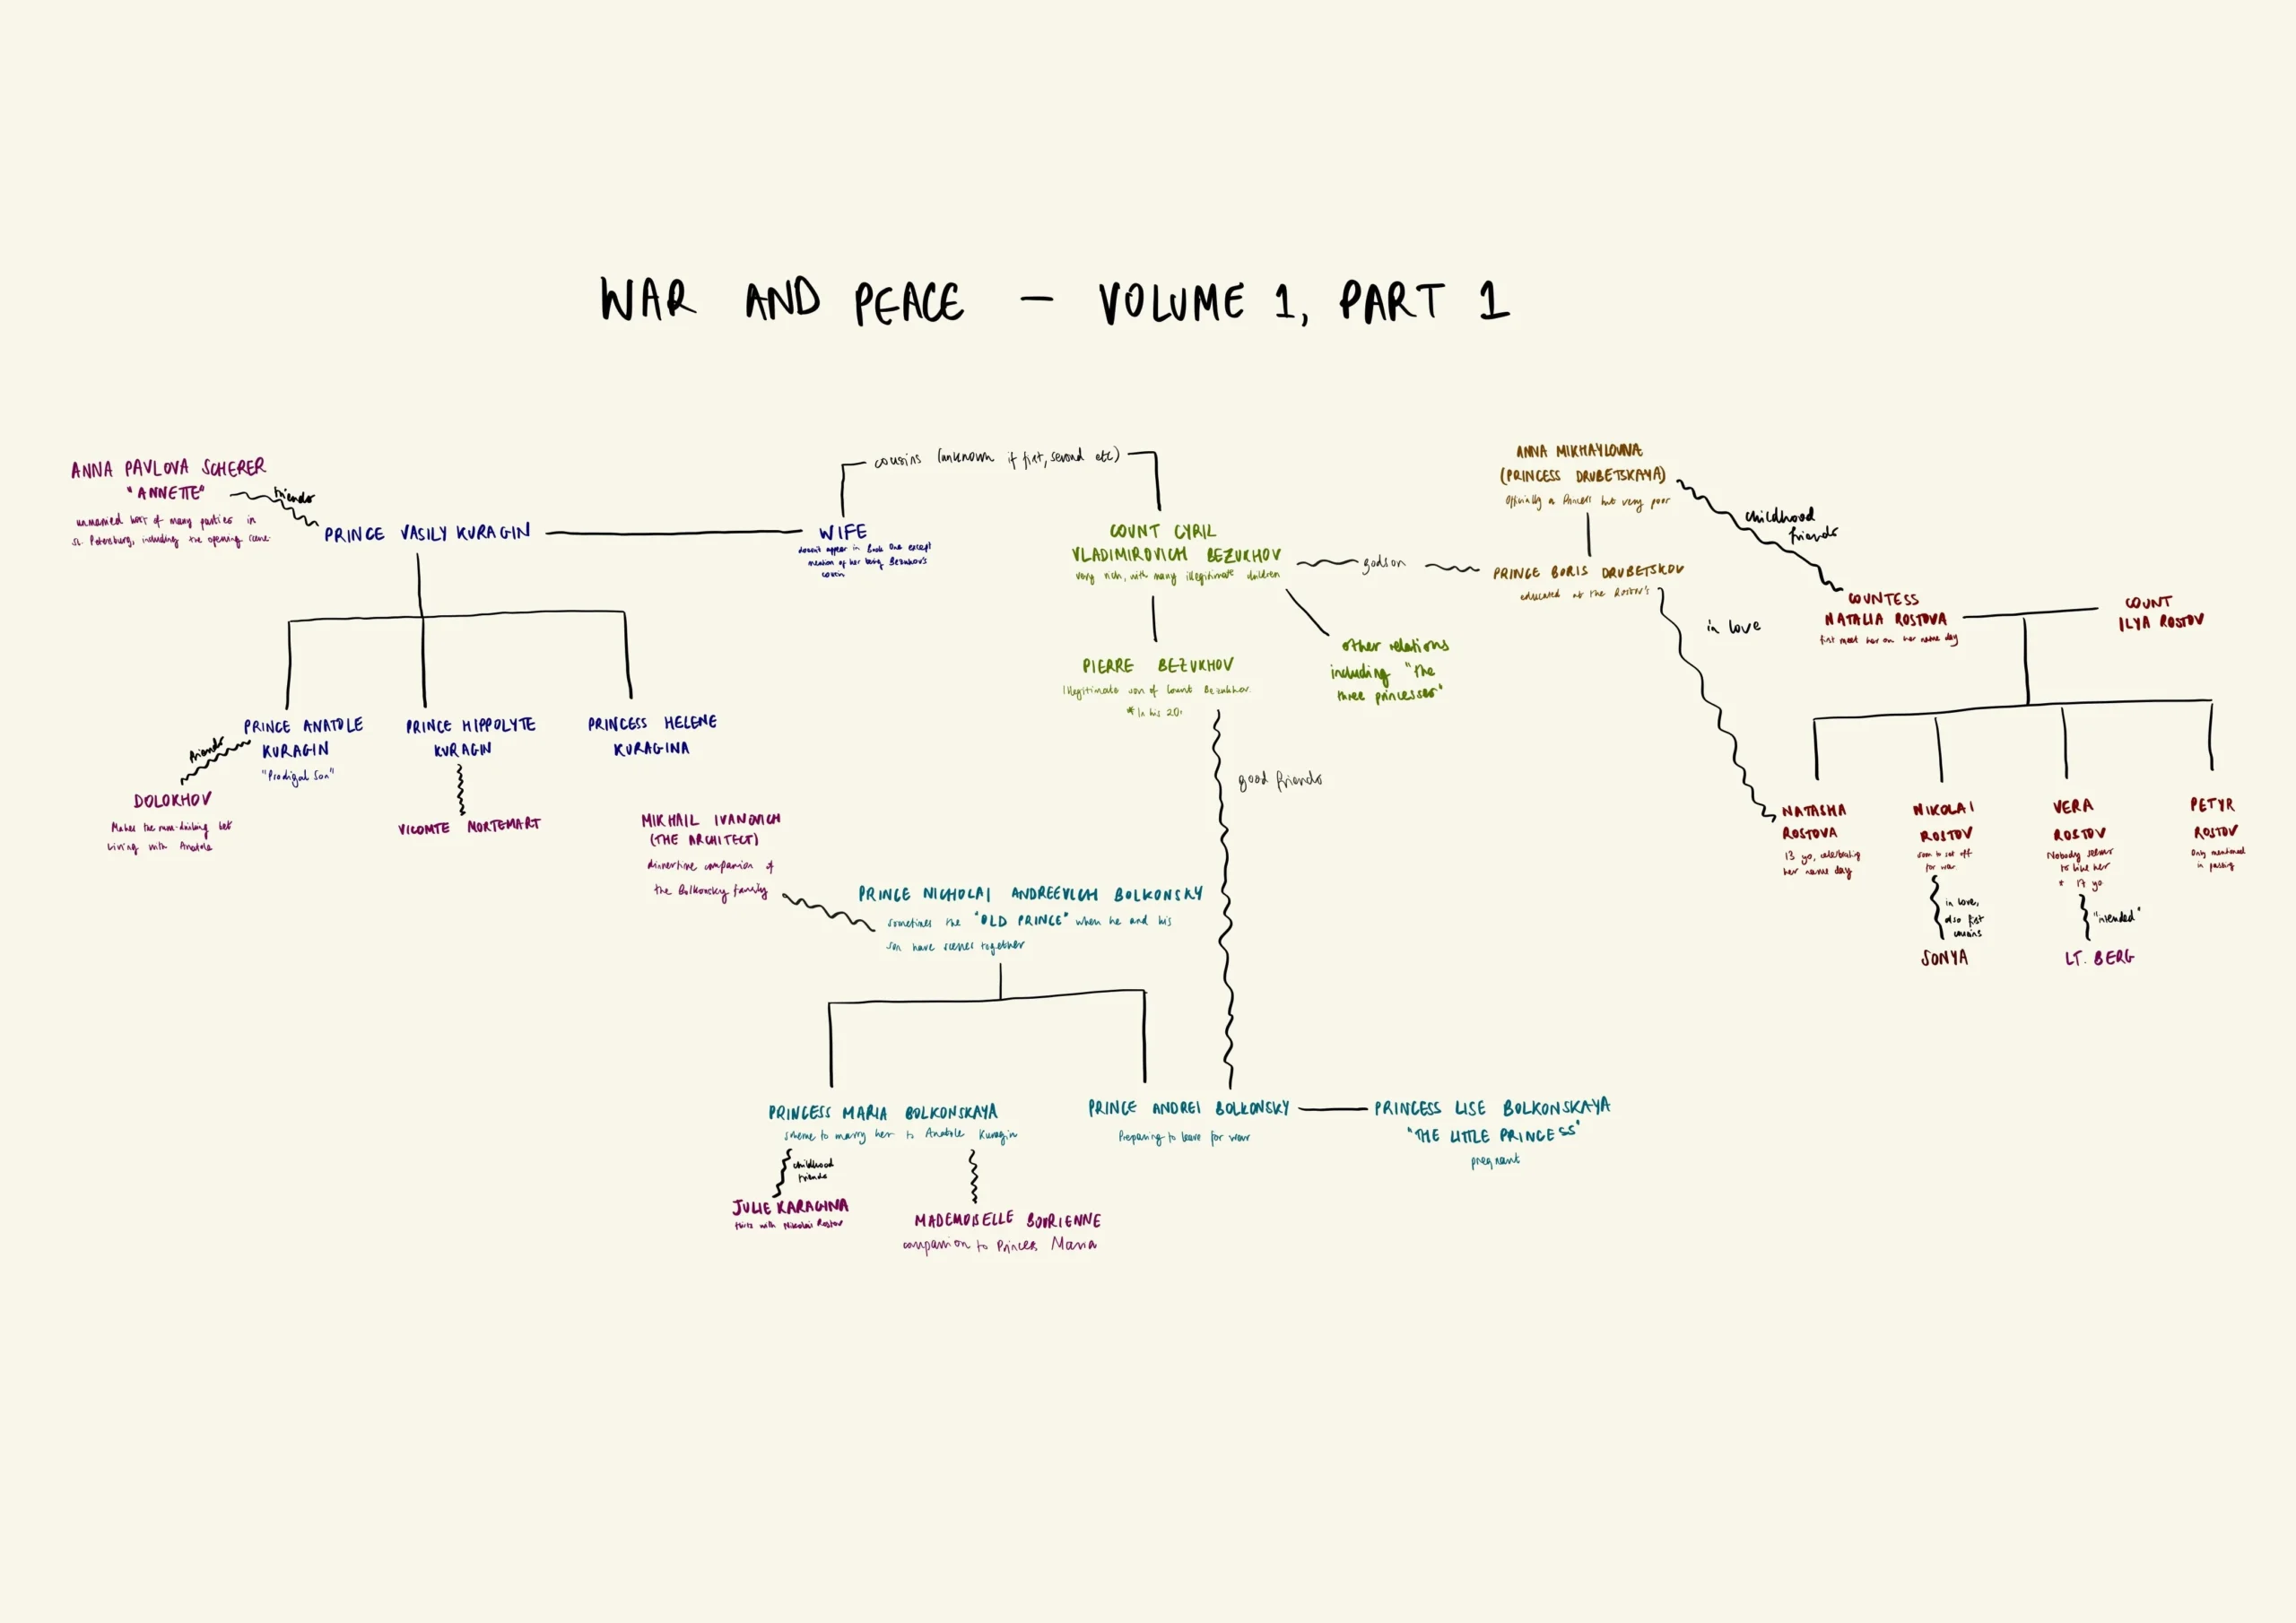 WAR AND PEACE — VOLUME 1, PART 1
ANNA PAVLOVA SCHERER
"ANNETTE"
unmarried host of many parties in
St. Petersburg, including the opening scene.
friends
PRINCE VASILY KURAGIN
WIFE
doesn't appear in Book One except
mention of her being Bezukhov's
cousin
cousins (unknown if first, second etc)
COUNT CYRIL
VLADIMIROVICH BEZUKHOV
very rich, with many illegitimate children
godson
ANNA MIKHAYLOVNA
(PRINCESS DRUBETSKAYA)
Officially a Princess but very poor
PRINCE BORIS DRUBETSKOV
educated at the Rostov's
childhood
friends
in love
COUNTESS
NATALIA ROSTOVA
first meet her on her name day
COUNT
ILYA ROSTOV
PIERRE BEZUKHOV
Illegitimate son of Count Bezukhov.
* In his 20s
other relations
including "the
three princesses"
good friends
PRINCE ANATOLE
KURAGIN
"Prodigal Son"
PRINCE HIPPOLYTE
KURAGIN
PRINCESS HELENE
KURAGINA
friends
DOLOKHOV
Makes the rum-drinking bet
Living with Anatole
VICOMTE MORTEMART
MIKHAIL IVANOVICH
(THE ARCHITECT)
dinnertime companion of
the Bolkonsky family
PRINCE NICHOLAI ANDREEVICH BOLKONSKY
sometimes the "OLD PRINCE" when he and his
son have scenes together
NATASHA
ROSTOVA
13 yo, celebrating
her name day
NIKOLAI
ROSTOV
soon to set off
for war
in love,
also first
cousins
SONYA
VERA
ROSTOV
Nobody seems
to like her
* 17 yo
"intended"
LT. BERG
PETYR
ROSTOV
Only mentioned
in passing
PRINCESS MARIA BOLKONSKAYA
scheme to marry her to Anatole Kuragin
childhood
friends
JULIE KARAGINA
flirts with Nikolai Rostov
MADEMOISELLE BOURIENNE
companion to Princess Maria
PRINCE ANDREI BOLKONSKY
Preparing to leave for war
PRINCESS LISE BOLKONSKAYA
"THE LITTLE PRINCESS"
pregnant